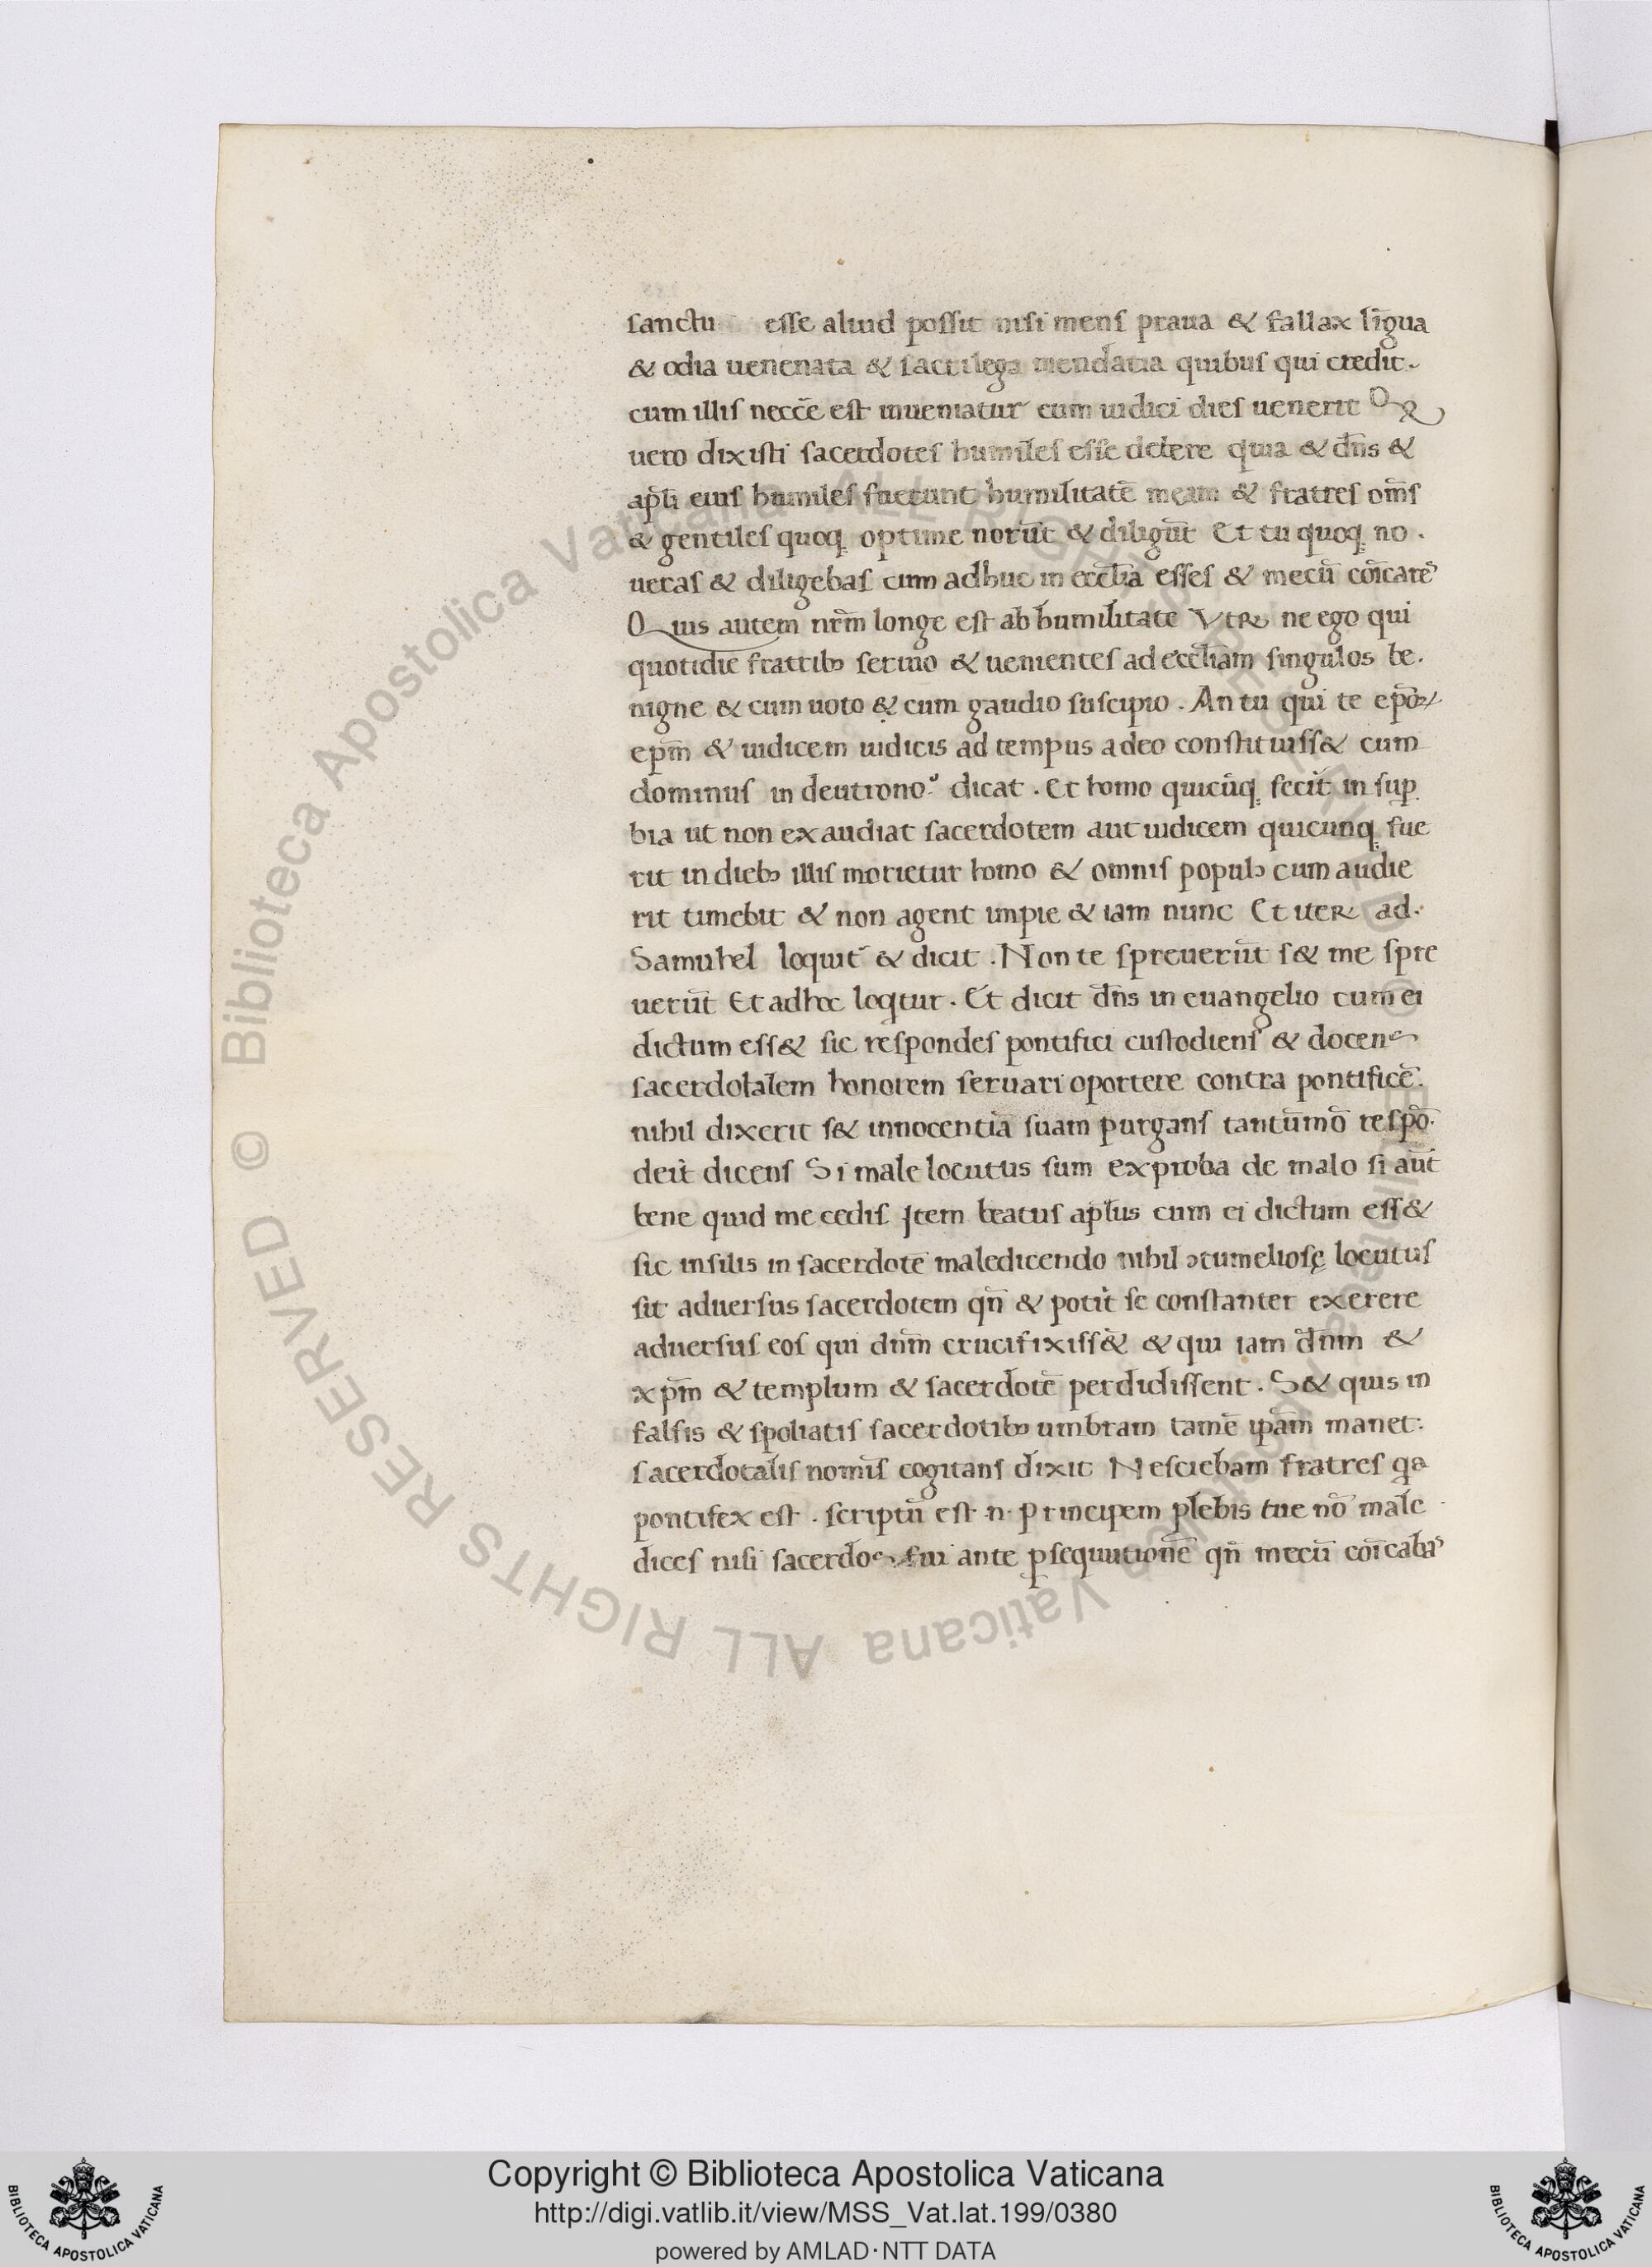 sanctu esse aliud possit nisi mens praua & fallax līgua
& odia uenenata & sacrilega mendatia quibus qui credit.
cum illis necc̄e est inueniatur cum iudici dies uenerit Qꝫ
uero dixisti sacerdotes humiles esse debere quia & dn̄s &
apl̄i eius humiles fuerunt humilitatē meam & fratres om̄s
& gentiles quoq; optime norūt & diligūt Et tu quoq; no.
ueras & diligebas cum adhuc in eccl̄ia esses & mecū cōicareˀ
Quis autem nr̄m longe est ab humilitate Vtꝝ ne ego qui
quotidie fratribꝰ seruio & uenientes ad eccl̄iam singulos be.
nigne & cum uoto & cum gaudio suscipio. An tu qui te ep̄oꝝ
ep̄m & iudicem iudicis ad tempus a deo constituiss& cum
dominus in deutronoº dicat. Et homo quicūq; fecit in suꝑ
bia ut non exaudiat sacerdotem aut iudicem quicunq; fue
rit in diebꝰ illis morietur homo & omnis populꝰ cum audie
rit timebit & non agent impie & iam nunc Et iteꝝ ad.
Samuhel loquit᷑ & dicit. Non te spreuerūt s& me spre
uerūt Et adhoc loqͥtur. Et dicit dn̄s in euangelio cum ei
dictum ess& sic respondes pontifici custodiens & docens
sacerdotalem honorem seruari oportere contra pontificē.
nihil dixerit s& innocentiā suam purgans tantūmō respō.
derit dicens Si male locutus sum exproba de malo si aūt
bene quid me cedis Item beatus apl̄us cum ei dictum ess&
sic insilis in sacerdotē maledicendo nihil ꝯtumeliosę locutus
sit aduersus sacerdotem qn̄ & potͥit se constanter exerere
aduersus eos qui dn̄m crucifixiss& & qui iam dn̄m &
xp̄m & templum & sacerdotē perdidissent. S& quis in
falsis & spoliatis sacerdotibꝰ umbram tamē ip̄am manet:
sacerdotalis nomīs cogitans dixit Nesciebam fratres qa
pontifex est. scriptū est .n. principem plebis tue nō male
dices nisi sacerdos fui ante ꝑsequutionē qn̄ mecū cōicabaˢ
Copyright © Biblioteca Apostolica Vaticana
http://digi.vatlib.it/view/MSS_Vat.lat.199/0380
powered by AMLAD·NTT DATA
BIBLIOTECA APOSTOLICA VATICANA
BIBLIOTECA APOSTOLICA VATICANA
© Biblioteca Apostolica Vaticana ALL RIGHTS RESERVED © Biblioteca Apostolica Vaticana ALL RIGHTS RESERVED